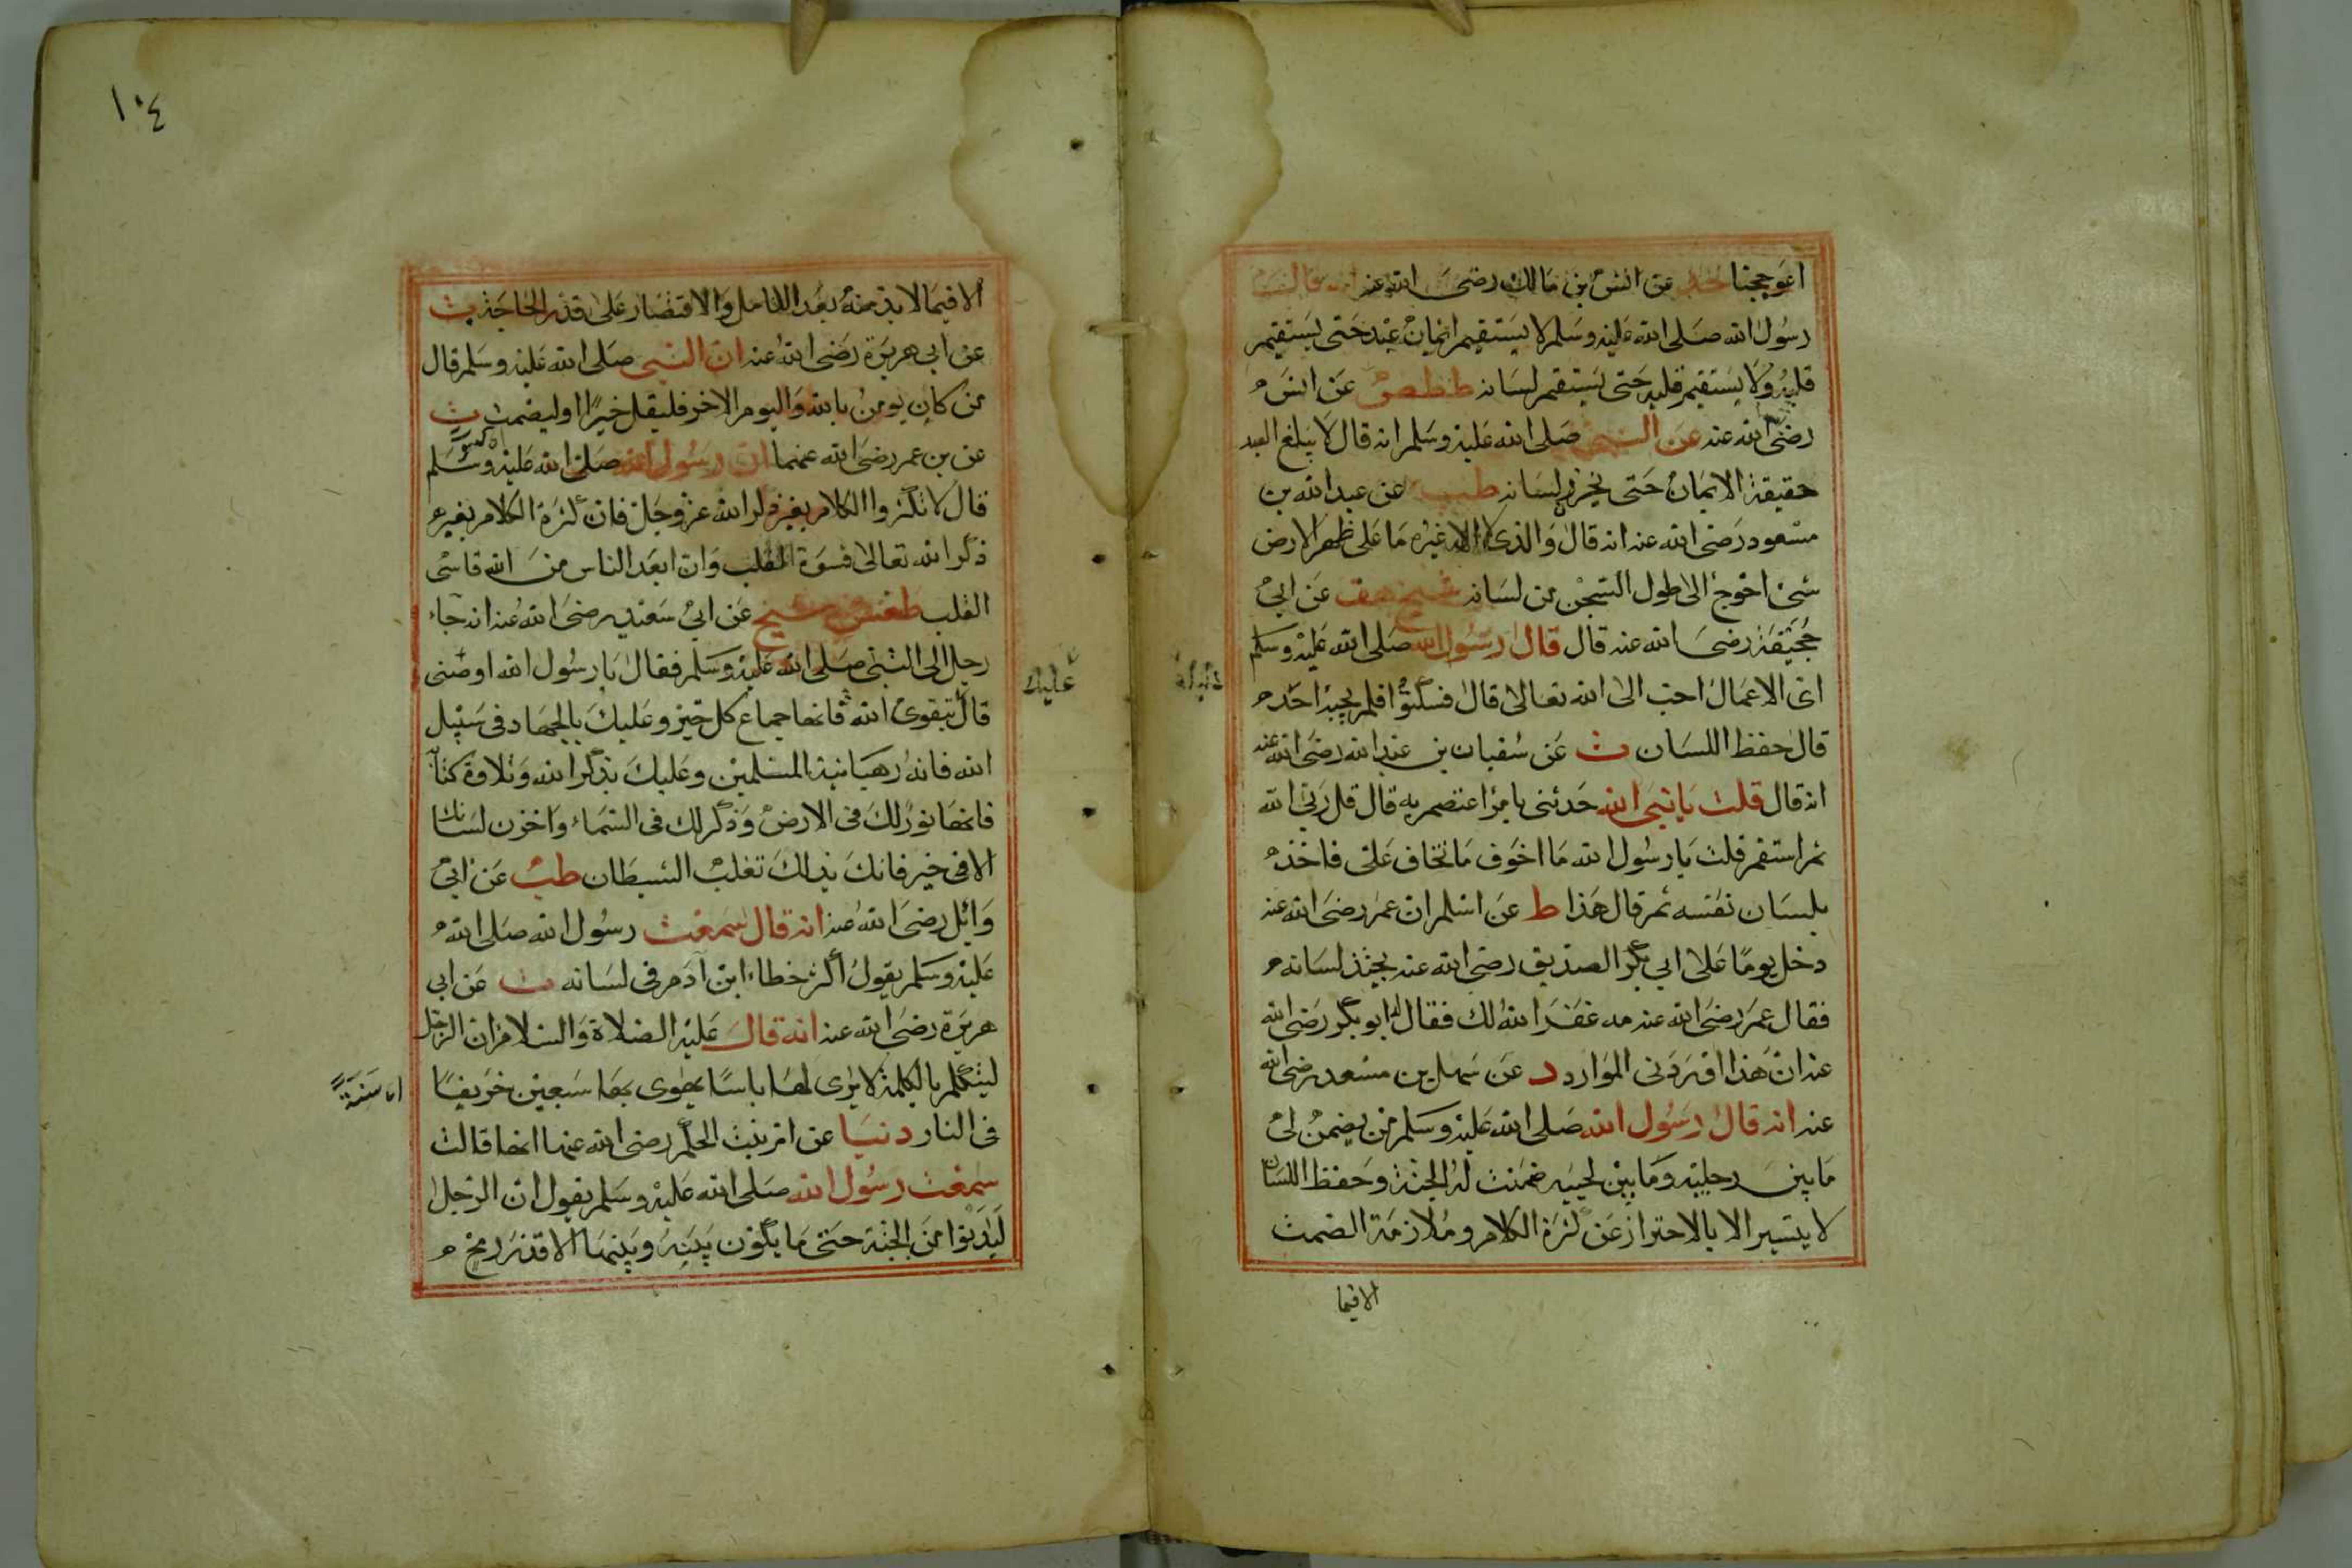 اعوججنا حد عن انس بن مالك رضى الله عنه انه قال قال
رسول الله صلى الله عليه وسلم لا يستقيم ايمان عبد حتى يستقيم
قلبه ولا يستقيم قلبه حتى يستقيم لسانه ططص عن انس
رضى الله عنه عن النبى صلى الله عليه وسلم انه قال لا يبلغ العبد
حقيقة الايمان حتى يخزن لسانه طب عن عبد الله بن
مسعود رضى الله عنه انه قال والذى لا اله غيره ما على ظهر الارض
شئ احوج الى طول السجن من لسانه شيخ هق عن ابى
جحيفة رضى الله عنه قال قال رسول الله صلى الله عليه وسلم
اى الاعمال احب الى الله تعالى قال فسكتوا فلم يجبه احد
قال حفظ اللسان ت عن سفيان بن عبد الله رضى الله عنه
انه قال قلت يا نبى الله حدثنى بامر اعتصم به قال قل ربى الله
ثم استقم قلت يا رسول الله ما اخوف ما تخاف على فاخذ
بلسان نفسه ثم قال هذا ط عن اسلم ان عمر رضى الله عنه
دخل يوما على ابى بكر الصديق رضى الله عنه يجبذ لسانه
فقال عمر رضى الله عنه مه غفر الله لك فقال له ابو بكر رضى الله
عنه ان هذا اوردنى الموارد د عن سهل بن سعد رضى الله
عنه انه قال رسول الله صلى الله عليه وسلم من يضمن لى
ما بين رجليه وما بين لحييه ضمنت له الجنة وحفظ اللسان
لا يتيسر الا بالاحتراز عن كثرة الكلام وملازمة الصمت
الا فيما
١٠٤
الا فيما لا بد منه بعد التامل والاقتصار على قدر الحاجة ت
عن ابى هريرة رضى الله عنه ان النبى صلى الله عليه وسلم قال
من كان يومن بالله واليوم الاخر فليقل خيرا او ليصمت ت
عن بن عمر رضى الله عنهما ان رسول الله صلى الله عليه وسلم
قال لا تكثروا الكلام بغير ذكر الله عز وجل فان كثرة الكلام بغير
ذكر الله تعالى قسوة القلب وان ابعد الناس من الله قاسى
القلب طغص شيخ عن ابى سعيد رضى الله عنه انه جاء
رجل الى النبى صلى الله عليه وسلم فقال يا رسول الله اوصنى
عليك
قال بتقوى الله فانها جماع كل خير وعليك بالجهاد فى سبيل
الله فانه رهبانية المسلمين وعليك بذكر الله وتلاوة كتابه
فانها نور لك فى الارض وذكر لك فى السماء واخزن لسانك
الا فى خير فانك بذلك تغلب الشيطان طب عن ابى
وايل رضى الله عنه انه قال سمعت رسول الله صلى الله
عليه وسلم يقول اكثر خطاء ابن آدم فى لسانه ت عن ابى
هريرة رضى الله عنه انه قال عليه الصلاة والسلام ان الرجل
ليتكلم بالكلمة لا يرى لها باسا يهوى بها سبعين خريفا
اى سنة
فى النار دنيا عن امة بنت الحكم رضى الله عنها انها قالت
سمعت رسول الله صلى الله عليه وسلم يقول ان الرجل
ليدنوا من الجنة حتى ما يكون بينه وبينها الا قدر رمح